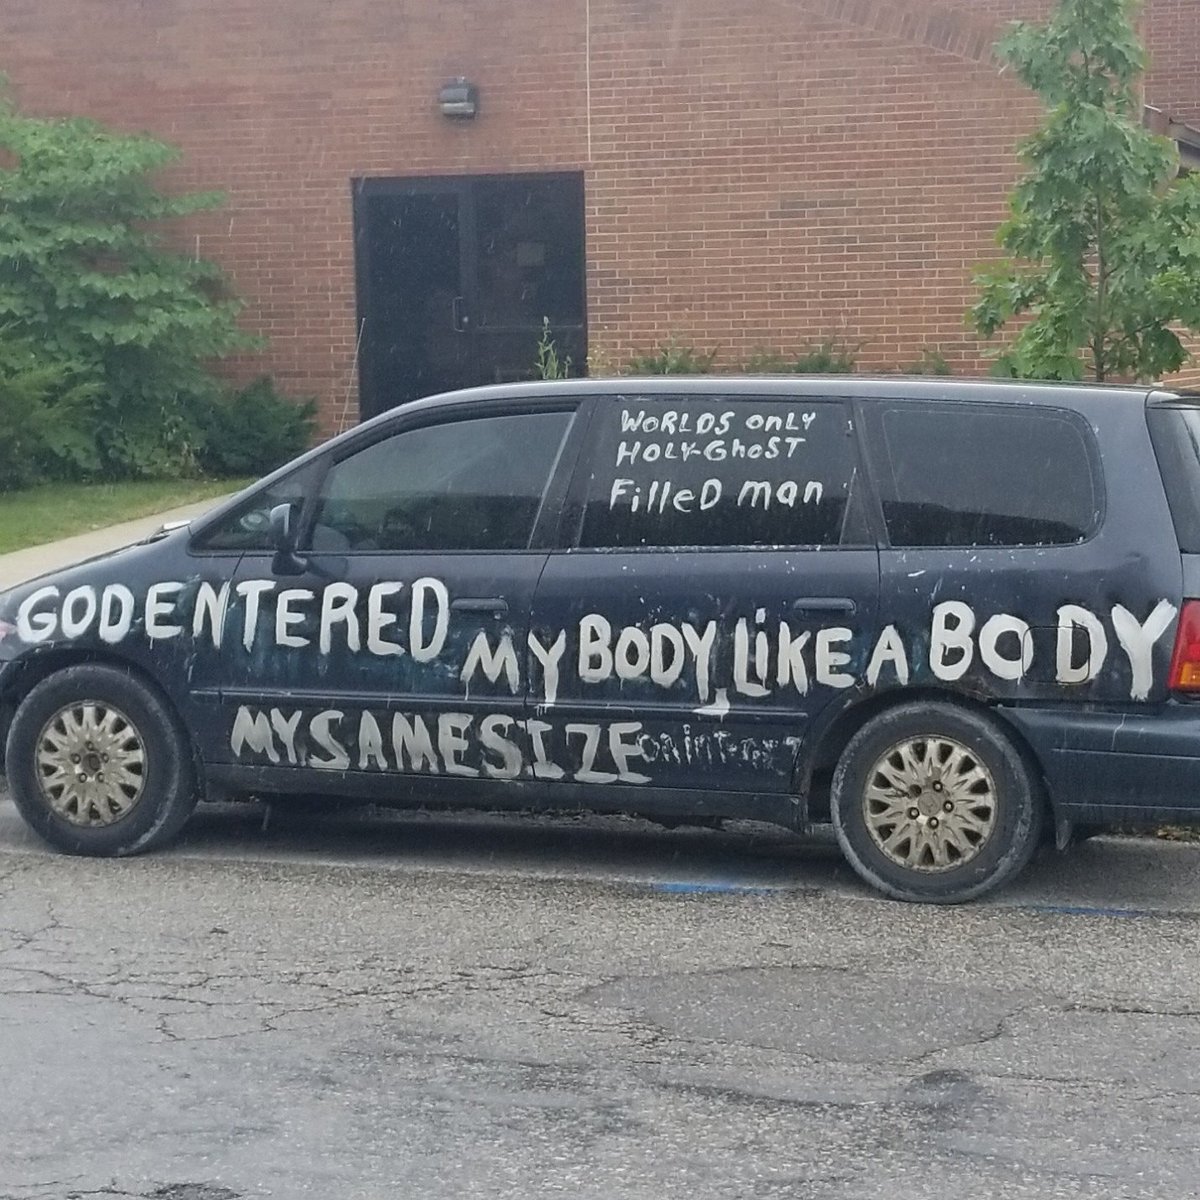 WORLDS ONLY
HOLY-GHOST
FilleD man
GOD ENTERED MY BODY LiKE A BODY
MY SAME SIZE